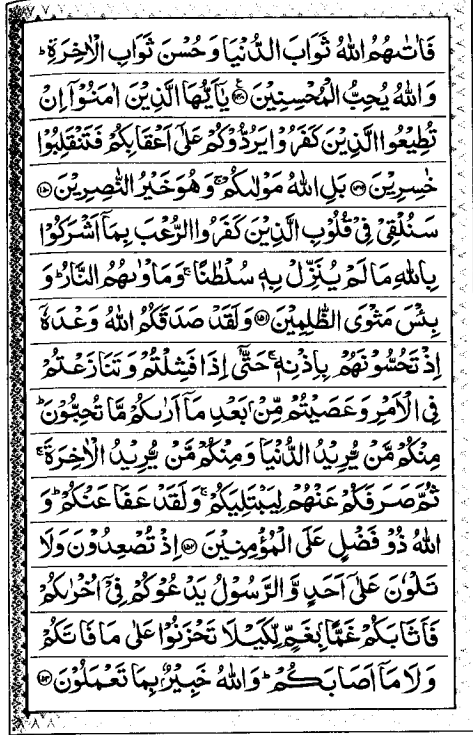 فَاٰتٰىهُمُ اللّٰهُ ثَوَابَ الدُّنْيَا وَحُسْنَ ثَوَابِ الْاٰخِرَةِ ؕ
وَاللّٰهُ يُحِبُّ الْمُحْسِنِيْنَ ﴿۱۴۸﴾ يٰۤاَيُّهَا الَّذِيْنَ اٰمَنُوْۤا اِنْ
تُطِيْعُوا الَّذِيْنَ كَفَرُوْا يَرُدُّوْكُمْ عَلٰۤى اَعْقَابِكُمْ فَتَنْقَلِبُوْا
خٰسِرِيْنَ ﴿۱۴۹﴾ بَلِ اللّٰهُ مَوْلٰىكُمْ ۚ وَهُوَ خَيْرُ النّٰصِرِيْنَ ﴿۱۵۰﴾
سَنُلْقِيْ فِيْ قُلُوْبِ الَّذِيْنَ كَفَرُوا الرُّعْبَ بِمَاۤ اَشْرَكُوْا
بِاللّٰهِ مَا لَمْ يُنَزِّلْ بِهٖ سُلْطٰنًا ۚ وَمَاْوٰىهُمُ النَّارُ ؕ وَ
بِئْسَ مَثْوَى الظّٰلِمِيْنَ ﴿۱۵۱﴾ وَلَقَدْ صَدَقَكُمُ اللّٰهُ وَعْدَهٗۤ
اِذْ تَحُسُّوْنَهُمْ بِاِذْنِهٖ ۚ حَتّٰۤى اِذَا فَشِلْتُمْ وَتَنَازَعْتُمْ
فِي الْاَمْرِ وَعَصَيْتُمْ مِّنْۢ بَعْدِ مَاۤ اَرٰىكُمْ مَّا تُحِبُّوْنَ ؕ
مِنْكُمْ مَّنْ يُّرِيْدُ الدُّنْيَا وَمِنْكُمْ مَّنْ يُّرِيْدُ الْاٰخِرَةَ ۚ
ثُمَّ صَرَفَكُمْ عَنْهُمْ لِيَبْتَلِيَكُمْ ۚ وَلَقَدْ عَفَا عَنْكُمْ ؕ وَ
اللّٰهُ ذُوْ فَضْلٍ عَلَى الْمُؤْمِنِيْنَ ﴿۱۵۲﴾ اِذْ تُصْعِدُوْنَ وَلَا
تَلْوٗنَ عَلٰۤى اَحَدٍ وَّالرَّسُوْلُ يَدْعُوْكُمْ فِيْۤ اُخْرٰىكُمْ
فَاَثَابَكُمْ غَمًّۢا بِغَمٍّ لِّكَيْلَا تَحْزَنُوْا عَلٰى مَا فَاتَكُمْ
وَلَا مَاۤ اَصَابَكُمْ ؕ وَاللّٰهُ خَبِيْرٌۢ بِمَا تَعْمَلُوْنَ ﴿۱۵۳﴾